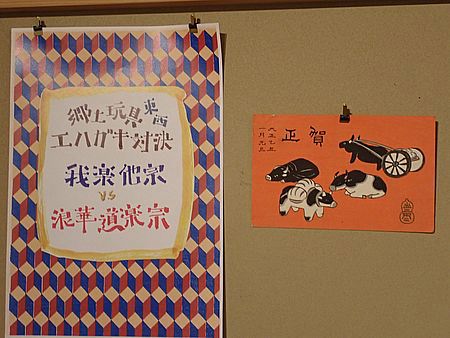 郷土玩具東西
エハガキ対決
我楽他宗
VS
浪華道楽宗
賀正
大正乙丑
一月元旦